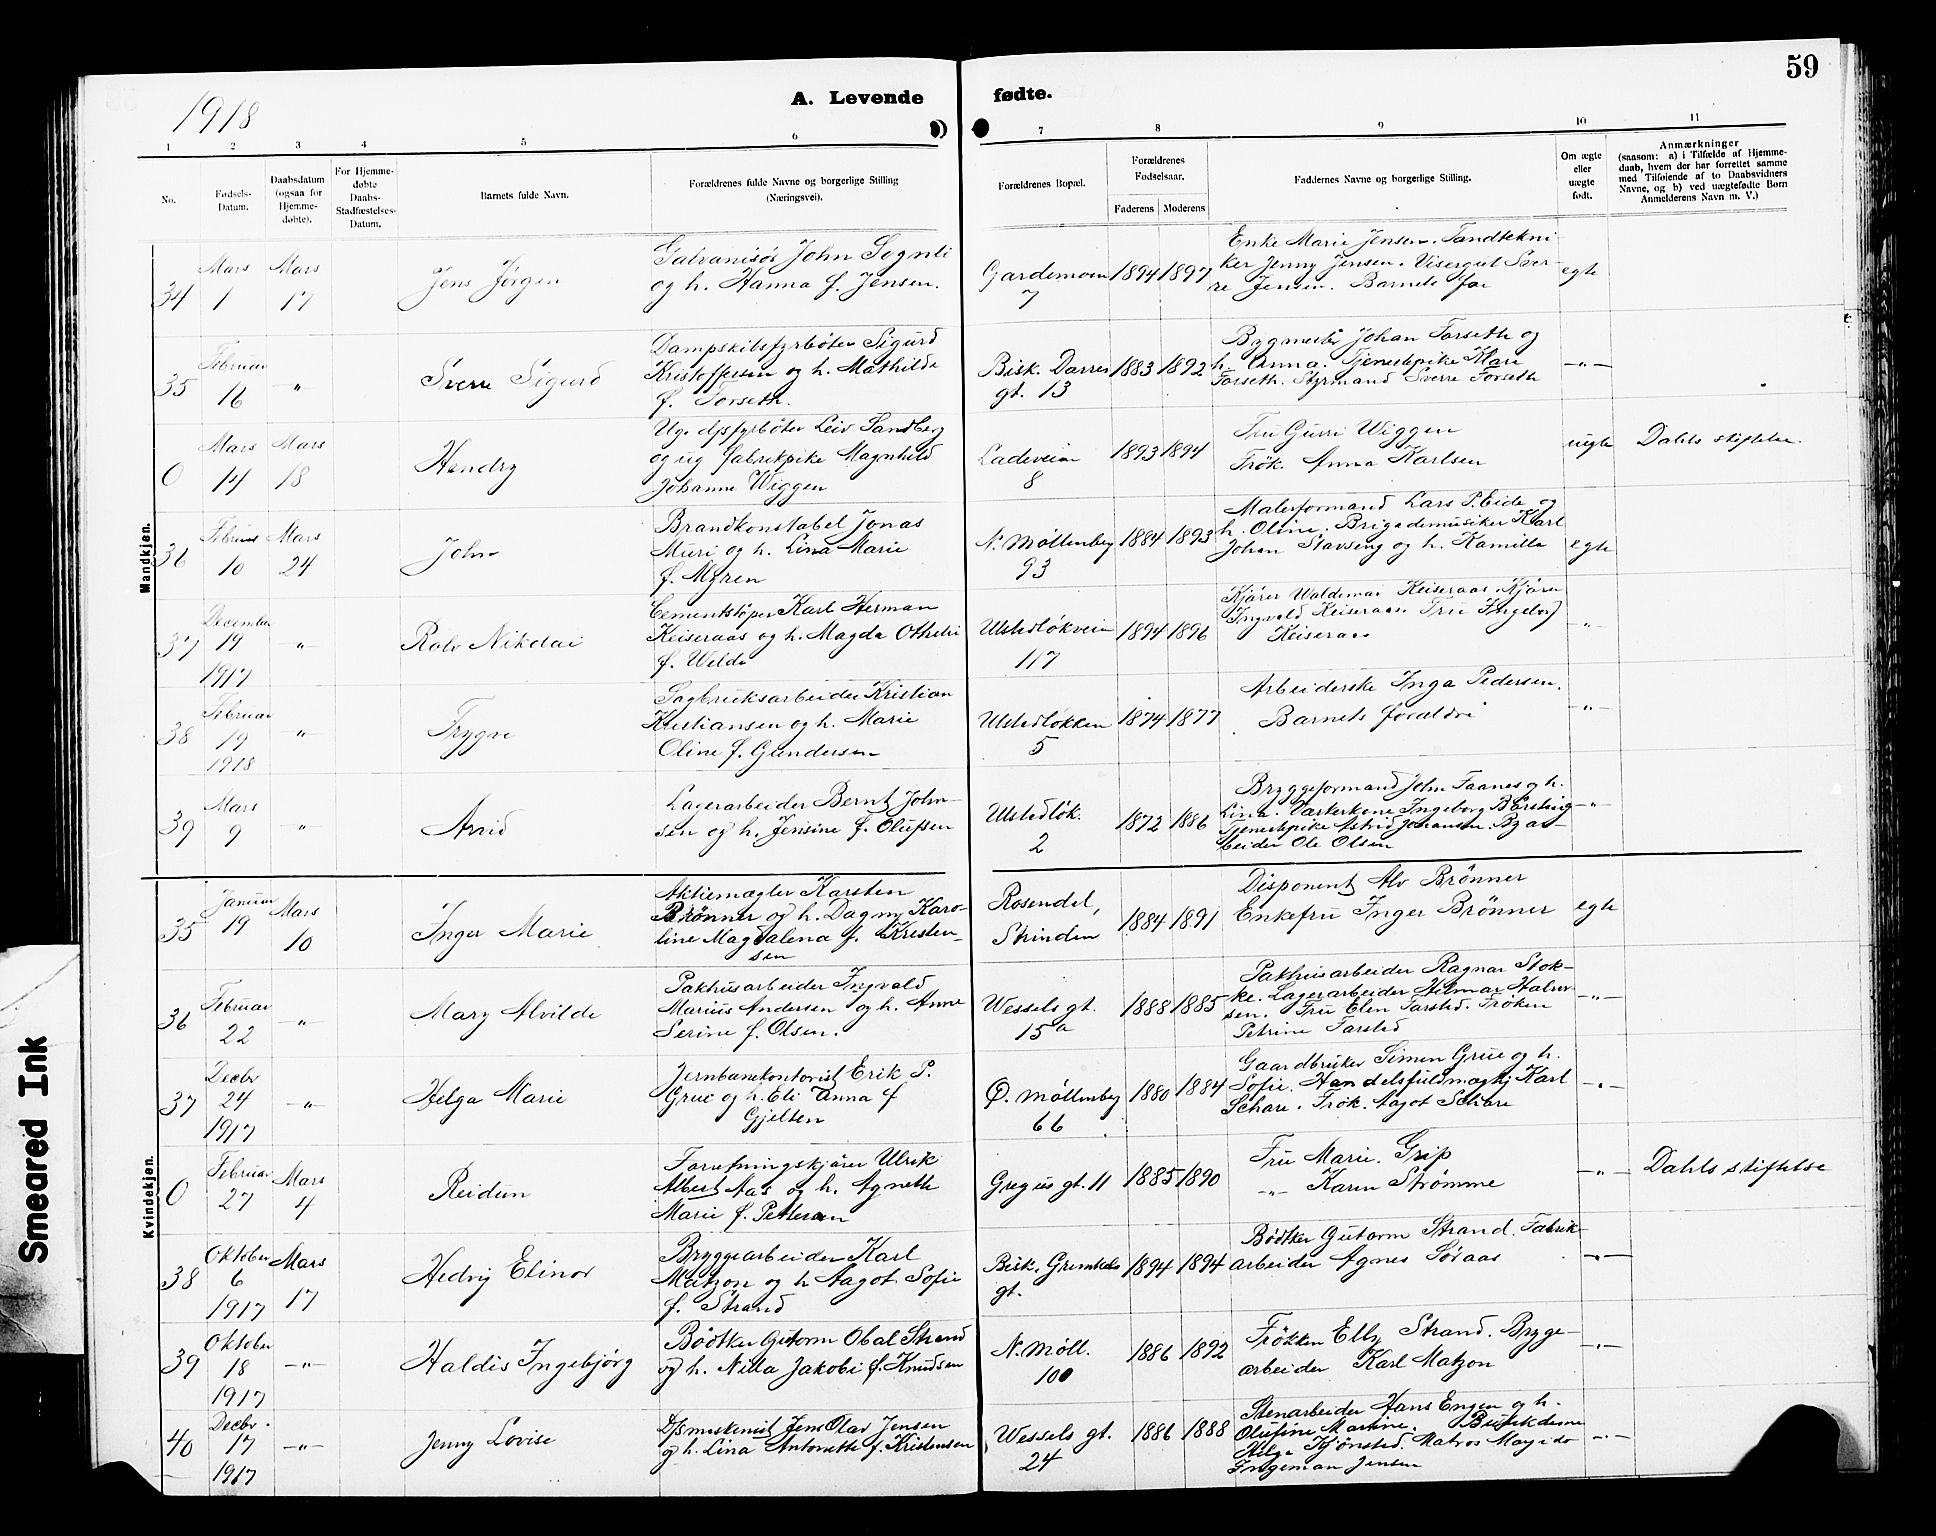 59
1918
A. Levende fødte.
1 2 3 4 5 6 7 8 9 10 11
No.
Fødsels-
Datum.
Daabsdatum
(ogsaa for
Hjemme-
døbte).
For Hjemme-
døbte
Daabs-
Stadfæstelses-
Datum.
Barnets fulde Navn.
Forældrenes fulde Navne og borgerlige Stilling
(Næringsvei).
Forældrenes Bopæl.
Forældrenes
Fødselsaar.
Faderens Moderens
Faddernes Navne og borgerlige Stilling.
Om ægte
eller
uægte
født.
Anmærkninger
(saasom: a) i Tilfælde af Hjemme-
daab, hvem der har forrettet samme
med Tilføiende af to Daabsvidners
Navne, og b) ved uægtefødte Børn
Anmelderens Navn m. V.)
Mandkjøn.
34
Mars
1
Mars
17
Jens Jørgen
Galvanisør John Sognli
og h. Hanna f. Jensen.
Gardemoen
7
1894 1897
Enke Marie Jensen. Tandtekni-
ker Jenny Jensen. Visergut Sver-
re Jensen. Barnets far
egte
35
Februar
16
-"-
Sverre Sigurd
Dampskibsfyrbøter Sigurd
Kristoffersen og h. Mathilde
f. Forseth.
Bisk. Darres
gt. 13
1883 1892
Bygmester Johan Forseth og
h. Anna. Tjenestepike Klara
Forseth. Styrmand Sverre Forseth
-"-
0
Mars
14
Mars
18
Hendry
Ug. dpsfyrbøter Leiv Sandberg
og ug fabrikpike Magnhild
Johanne Wiggen
Ladeveien
8
1893 1894
Fru Gurri Wiggen
Frøk. Anna Karlsen
uegte
Dahls stiftelse.
36
Februar
10
Mars
24
John
Brandkonstabel Jonas
Muri og h. Lina Marie
f. Myren
N. Møllenberg
93
1884 1893
Malerformand Lars P. Eide og
h. Oline. Brigademusiker Karl
Johan Stavseng og h. Kamilla
egte
37
December
19
1917
-"-
Rolv Nikolai
Cementstøper Karl Herman
Keiseraas og h. Magda Othelie
f. Welde
Ulstadløkveien
117
1894 1896
Kjører Waldemar Keiseraas. Kjører
Ingvald Keiseraas. Fru Ingeborg
Keiseraas
-"-
38
Februar
19
1918
-"-
Trygve
Sagbruksarbeider Kristian
Kristiansen og h. Marie
Oline f. Gundersen
Ulstadløkken
5
1874 1877
Arbeiderske Inga Pedersen.
Barnets forældre
-"-
39
Mars
9
-"-
Arvid
Lagerarbeider Bernt John-
sen og h. Jensine f. Olufsen
Ulstadløk.
2
1872 1886
Bryggeformand John Faanes og h.
Lina. Vaskerkone Ingeborg
Tjenestepike Astrid Johansen. Byar-
beider Ole Olsen
-"-
Kvindekjøn.
35
Januar
19
Mars
10
Inger Marie
Aktiemægler Karsten
Brønner og h. Dagny Karo-
line Magdalena f. Kristen-
sen
Rosendal,
Strinden
1884 1891
Disponent Alv Brønner
Enkefru Inger Brønner
egte
36
Februar
22
-"-
Mary Alvilde
Pakhusarbeider Ingvald
Marius Andersen og h. Anne
Serine f. Olsen.
Wessels gt.
15a
1888 1885
Pakhusarbeider Ragnar Stok-
ke. Lagerarbeider Hilmar Halvor-
sen. Fru Elen Farsted. Frøken
Petrine Farsted
-"-
37
Decbr
24
1917
-"-
Helga Marie
Jernbanekontorist Erik P.
Grue og h. Eli Anna f
Gjelten
Ø. Møllenberg
66
1880 1884
Gaardbruker Simen Grue og h.
Sofie. Handelsfuldmægtig Karl
Schare. Frøk. Aagot Schare
-"-
0
Februar
27
Mars
4
Reidun
Forretningskjører Ulrik
Albert Aas og h. Agneth
Marie f. Pettersen
Gregus gt. 11
1885 1890
Fru Marie Grip
-"- Karen Strømme
-"-
Dahls stiftelse
38
Oktober
6
1917
Mars
17
Hedvig Elinor
Bryggearbeider Karl
Matzon og h Aagot Sofie
f. Strand
Bisk. Grimkels
gt.
1894 1894
Bødtker Gutorm Strand. Fabrik-
arbeider Agnes Søraas
-"-
39
Oktober
18
1917
-"-
Haldis Ingebjørg
Bødtker Gutorm Obal Strand
og h. Nilla Jakobi f. Knudsen
N. Møll.
100
1886 1892
Frøken Elly Strand. Brygge-
arbeider Karl Matzon
-"-
40
Decbr.
17
1917
-"-
Jenny Lovise
Dpsmaskinist Jens Olav Jensen
og h. Lina Antonette f. Kristensen
Wessels gt.
24
1886 1888
Stenarbeider Hans Engen og h.
Olufine Martine. Butikdame
Helga Kjønsted. Matros
Ingeman Jensen
-"-
Smeared Ink